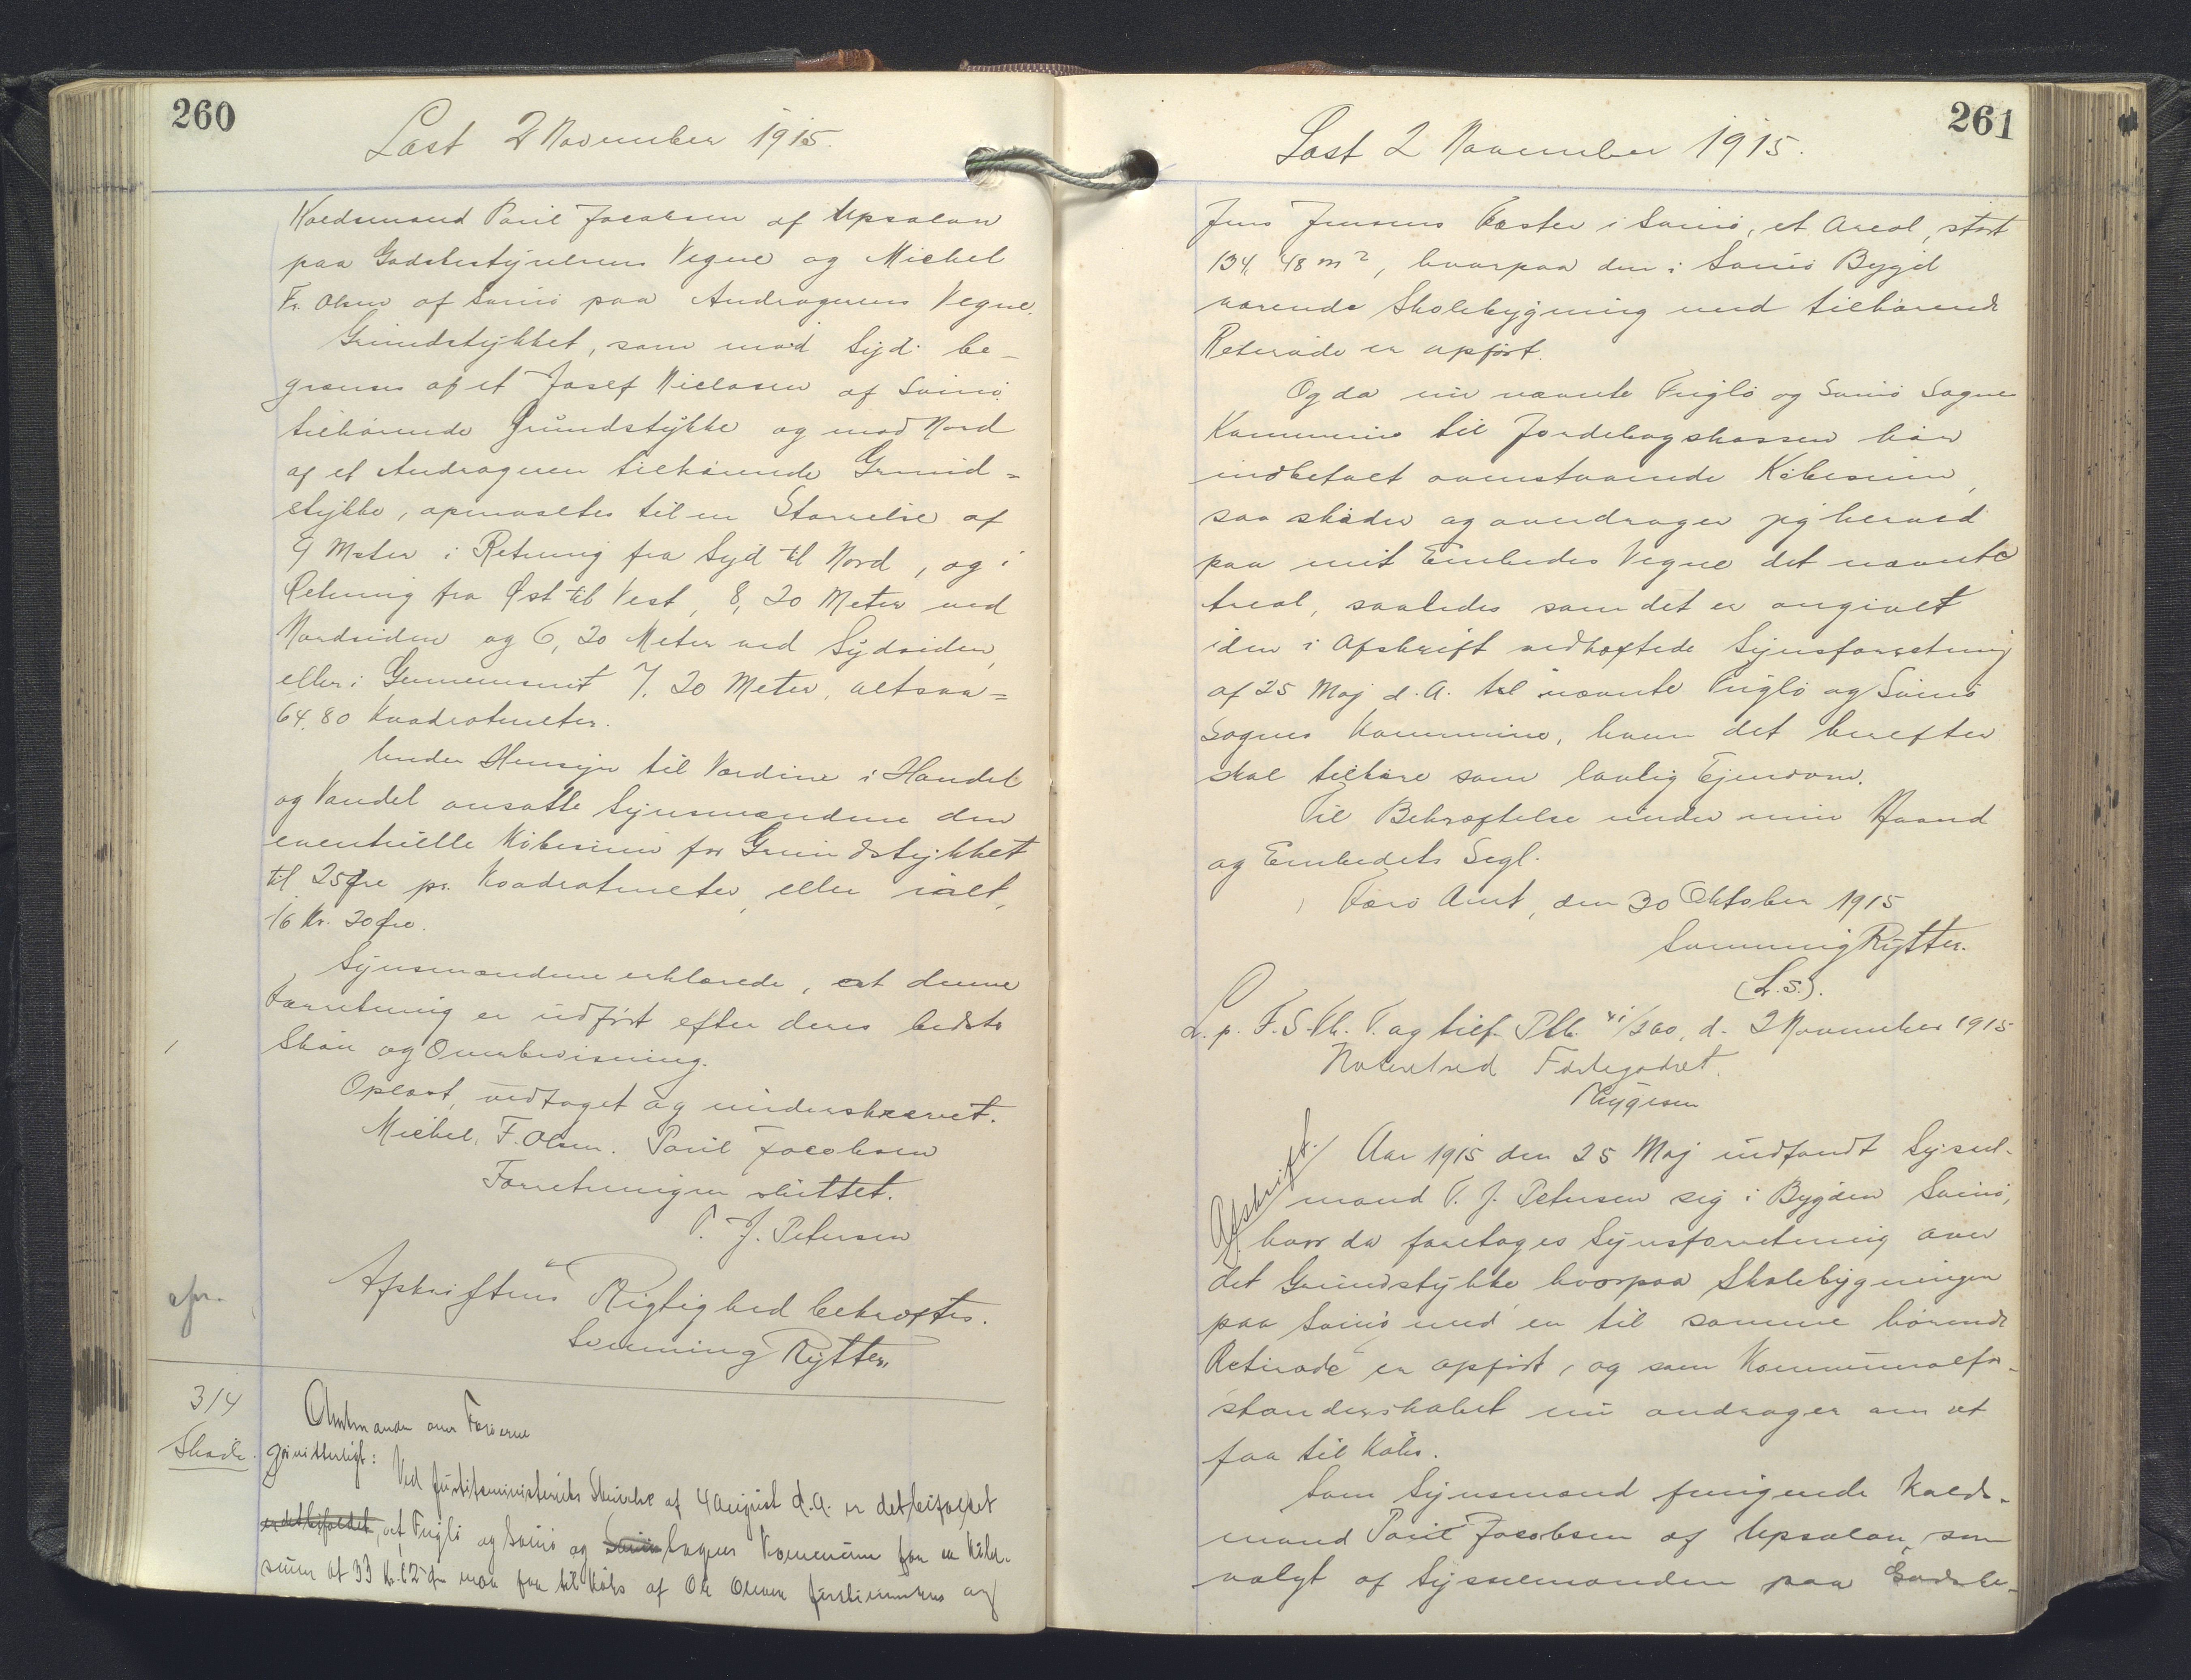 260
Læst 2 November 1915.
Kaldsmand Poul Jacobsen af Upsalen
paa Godsbestyrelsens Vegne og Michel
Fr. Olsen af Svinö paa Andragerens Vegne.
Grundstykket, som mod Syd be-
grænses af et Josef Nielasen af Svinö
tilhörende Grundstykke og mod Nord
af et Andrageren tilhörende Grund=
stykke, opmaaltes til en Störrelse af
9 Meter i Retning fra Syd til Nord, og i
Retning fra Øst til Vest, 8,20 Meter ved
Nordsiden og 6,20 Meter ved Sydsiden,
eller i Gennemsnit 7,20 Meter, altsaa=
64,80 Kvadratmeter.
Under Hensyn til Værdine i Handel
og Vandel ansatte Synsmændene den
eventuelle Köbesum for Grundstykket
til 25 Øre pr. Kvadratmeter, eller ialt,
16 Kr. 20 Øre.
Synsmændene erklærede, at denne
Forretning er udfört efter deres bedste
Skön og Overbevisning.
Oplæst, vedtaget og underskrevet.
Michel. F. Olsen. Poul Jacobsen
Forretningen sluttet.
P. J. Petersen
Afskriftens Rigtighed bekræftes.
Svenning Rytter.
314
Skøde.
Amtmanden over Færøerne
gör vitterligt: Ved Justitsministeriets Skrivelse af 4 August d.A. er det bifaldet
er det bifaldet, at Fuglö og Svinö og Svinö Sognes Kommune for en Köbe-
sum af 33 Kr. 62 Øre maa faa til Köbs af Ole Olsens og
261
Læst 2 November 1915.
Jens Jensens Fæster i Svinö, et Areal, stort
134,48 m², hvorpaa den i Svinö Bygd
værende Skolebygning med tilhörende
Reterade er opfört.
Og da nu nævnte Fuglö og Svinö Sognes
Kommune til Jordebogskassen har
indbetalt ovenstaaende Köbesum,
saa sköder og overdrager jeg herved
paa mit Embedes Vegne det nævnte
Areal, saaledes som det er angivet
i den i Afskrift vedhæftede Synsforretning
af 25 Maj d.A. til nævnte Fuglö og Svinö
Sognes Kommune, hvem det herefter
skal tilhöre som lovlig Ejendom.
Til Bekræftelse under min Haand
og Embedets Segl.
Færö Amt, den 30 Oktober 1915
Svenning Rytter.
(L.S.).
L. p. F. S. Th. T. og tilf. Ptb. XI/260, d. 2 November 1915
Noteret ved Fæstegodset.
Afskrift./ Aar 1915 den 25 Maj indfandt Syssel-
mand P. J. Petersen sig i Bygden Svinö,
hvor da foretoges Synsforretning over
det Grundstykke, hvorpaa Skolebygningen
paa Svinö med en til samme hörende
Retirade er opfört, og som Kommunalfor-
standerskabet nu andrager om at
faa til Köbs.
Som Synsmænd fungerede Kalds-
mand Poul Jacobsen af Upsalen, som
valgt af Sysselmanden paa Godsbe-